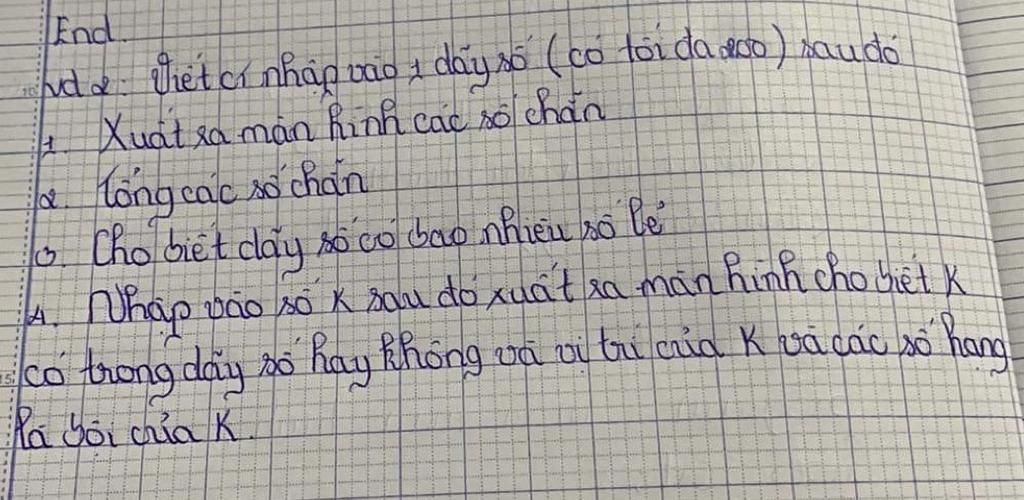 End.
Vd 2: Viết ct nhập vào 1 dãy số (có tối đa 200) sau đó
1. Xuất ra màn hình các số chẵn
2. Tổng các số chẵn
3. Cho biết dãy số có bao nhiêu số lẻ
4. Nhập vào số K sau đó xuất ra màn hình cho biết K
có trong dãy số hay không và vị trí của K và các số hạng
là bội của K.